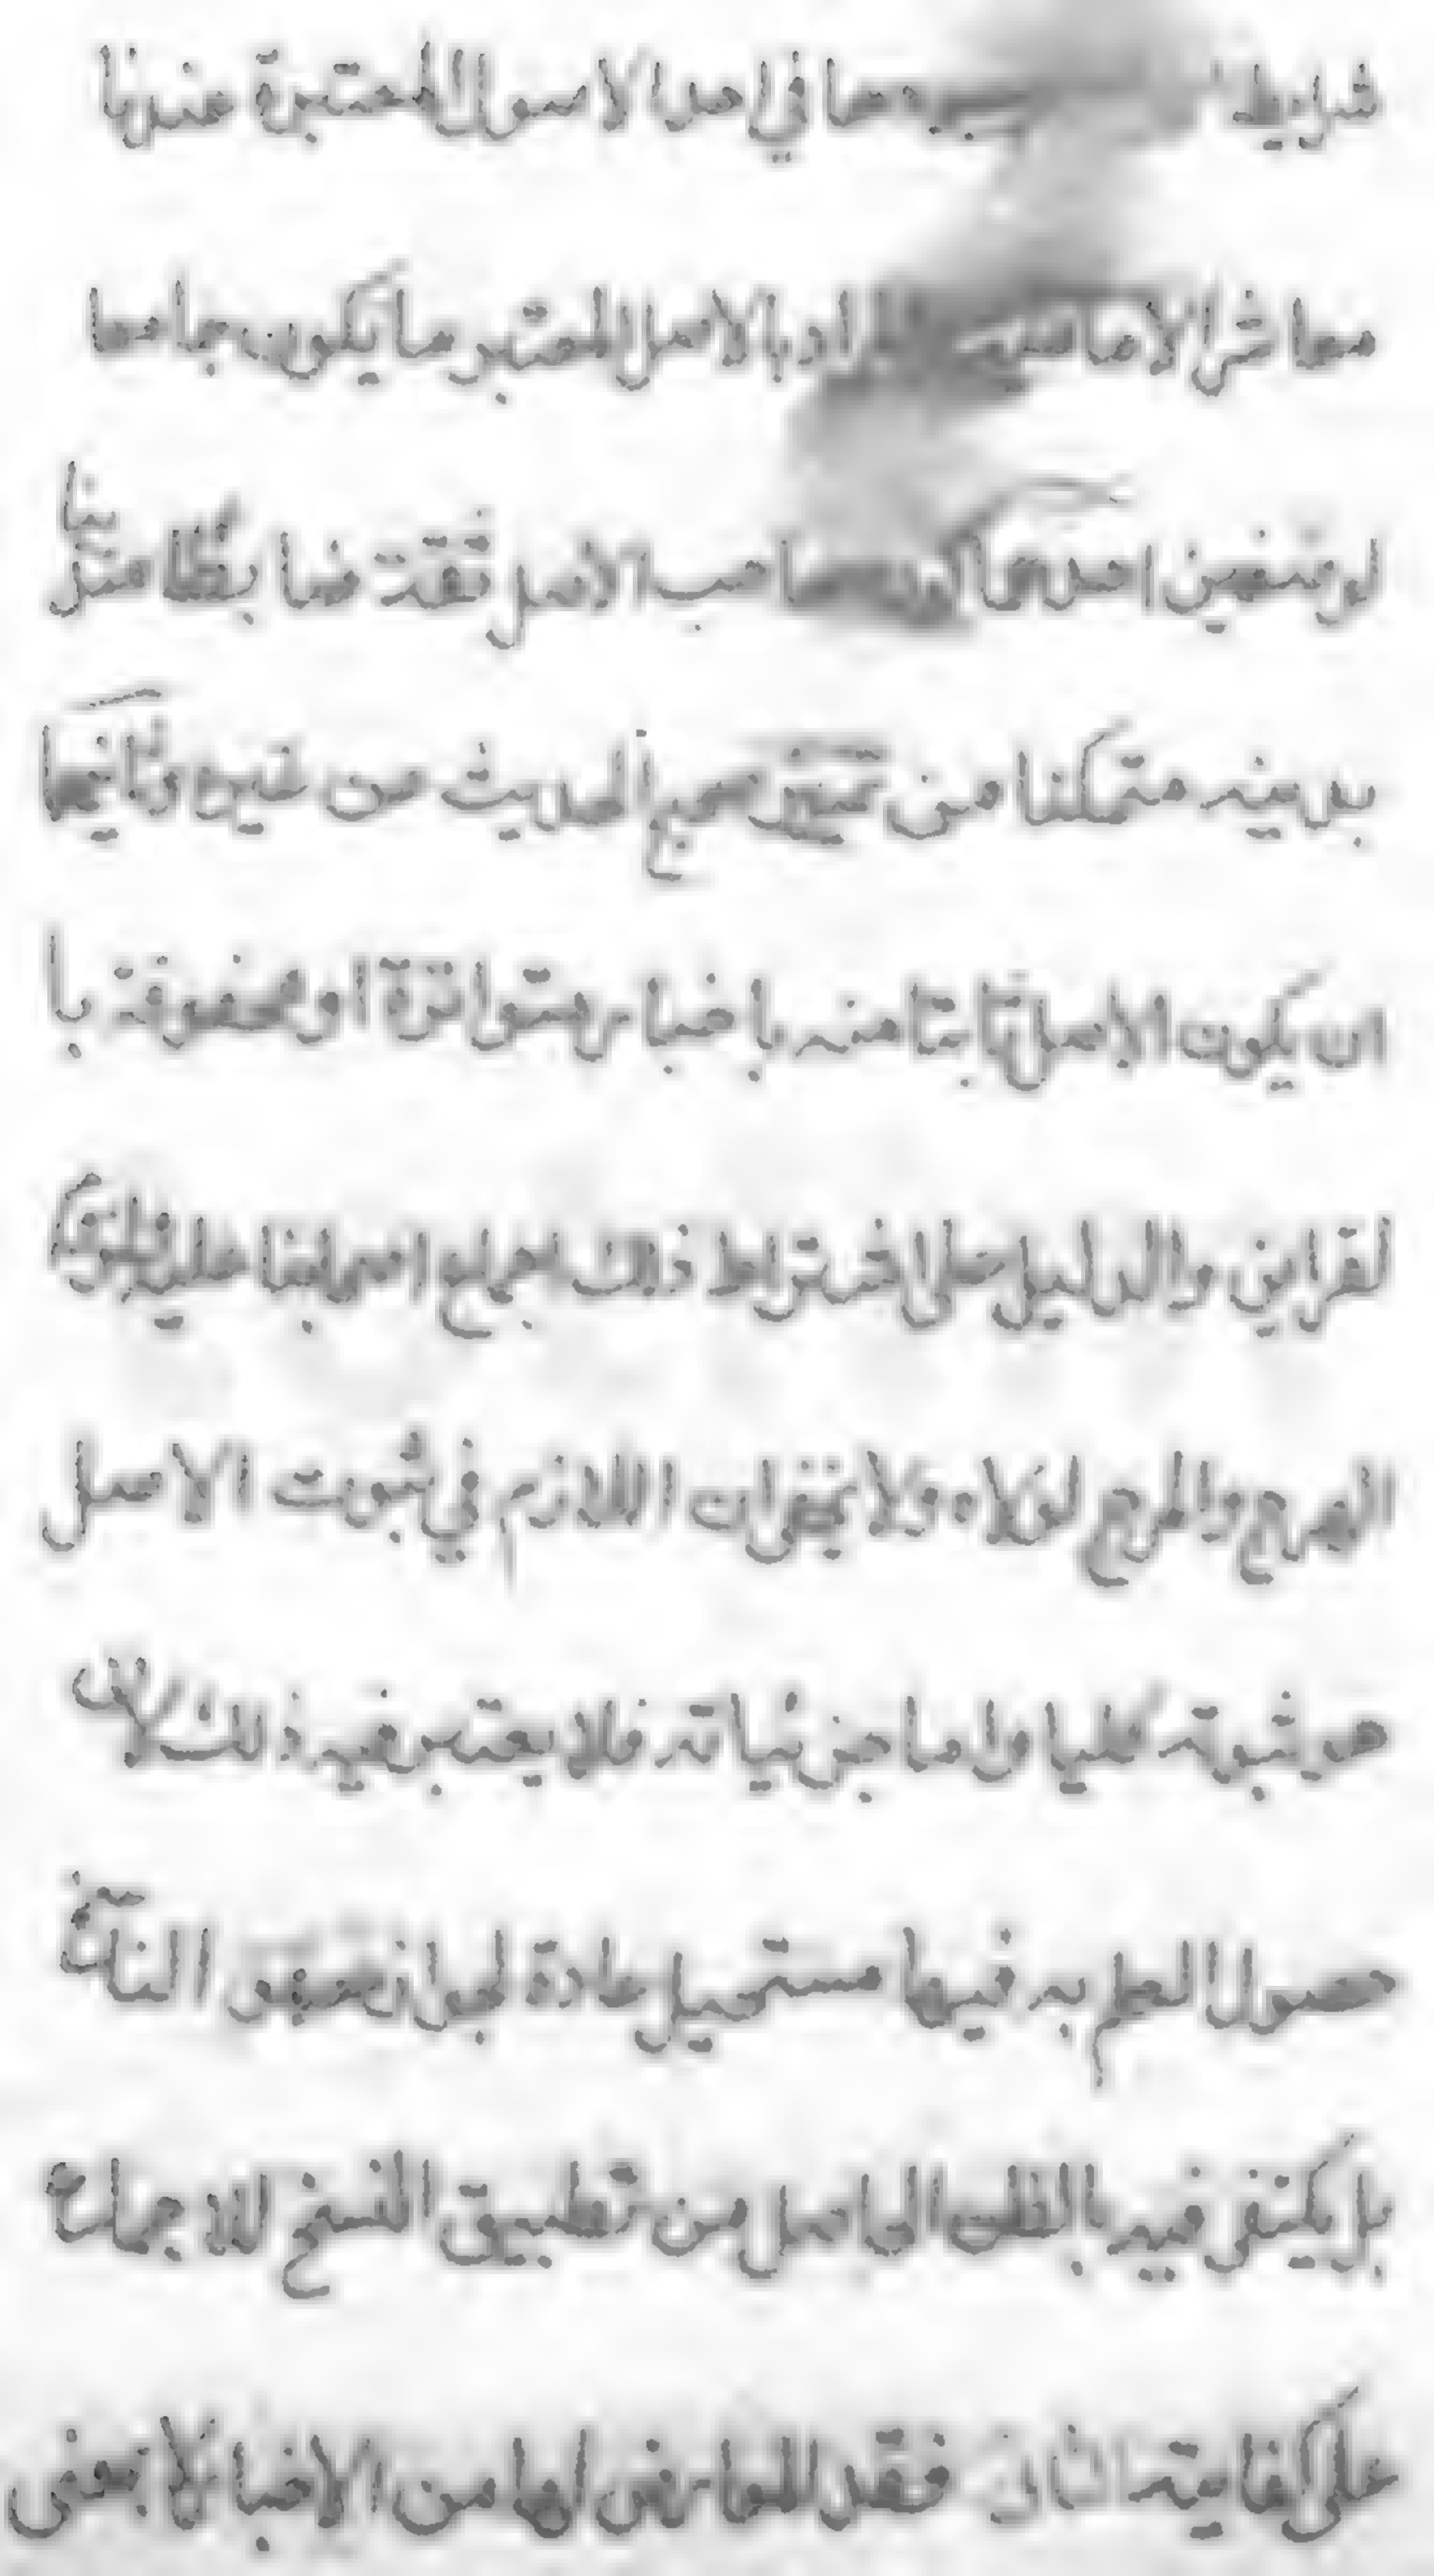 شرايط في احد الاصول المعتبرة عندنا
معاشر الامامية بالاصل المعتبر ما يكون جامعا
لوصفين احدهما كون صاحب الاصل ثقة ضابطا عدل بنا
بدينه متمكنا من تميز صحيح الحديث من غيره وثانيهما
ان يكون الاصل ثابتا منه باخبار متواترة او محفوفة با
لقراين والدليل على اشتراط ذلك اجماع اصحابنا عليه
الحرج والمرج لولاه ولا يخفى ان اللازم في ثبوت الاصل
هو ثبوته كليا واما جزئياته فلا يعتبر فيه ذلك لان
حصول العلم به فيها مستحيل عادة لجواز تصور الناسخ
بل يكتفى فيه بالظن الحاصل من تطبيق النسخ للاجماع
على كفايته الثان فقد المعارض لها من الاخبار لا بمعنى